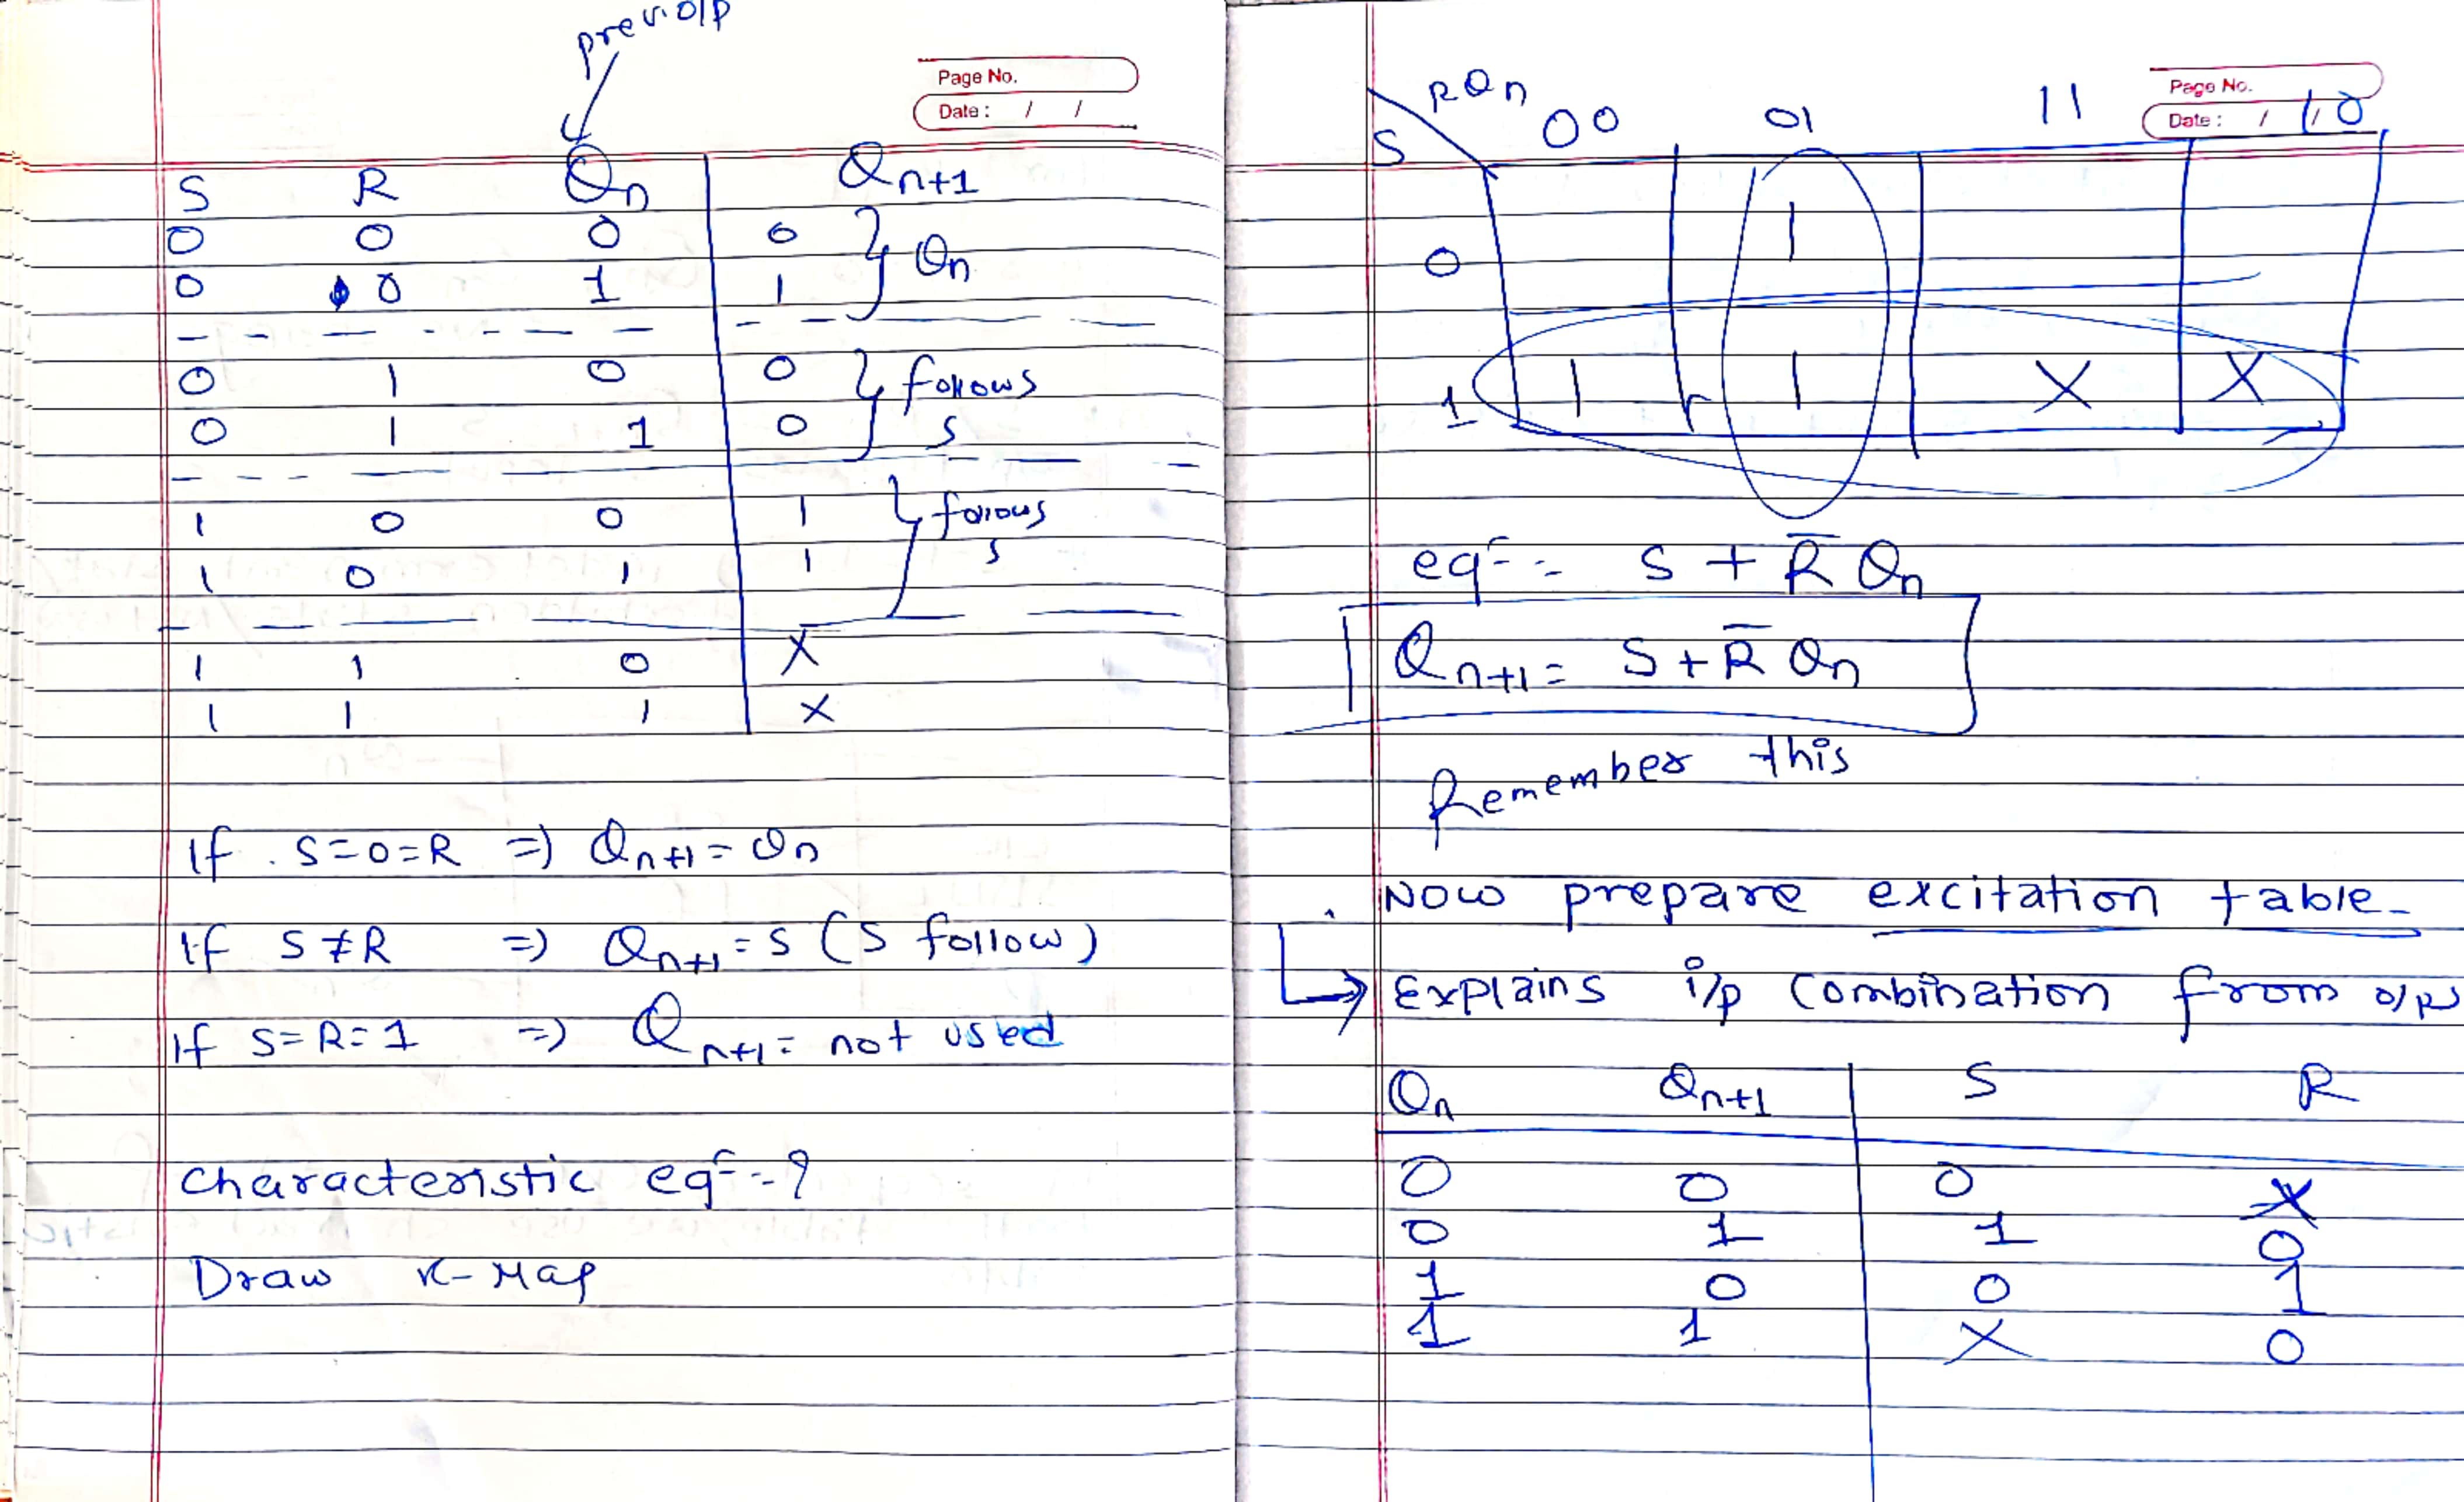 previ. o/p
Page No.
Date : / /
S R Qn Qn+1
0 0 0 0 } Qn
0 0 1 1
0 1 0 0 } follows
0 1 1 0 S
1 0 0 1 } follows
1 0 1 1 S
1 1 0 X
1 1 1 X
If S=0=R ⇒ Qn+1 = Qn
If S≠R ⇒ Qn+1 = S (S follow)
If S=R=1 ⇒ Qn+1 = not used
Characteristic eqⁿ = ?
Draw K-Map
Page No.
Date : / /
S RQn 00 01 11 10
0 1
1 1 1 X X
eqⁿ = S + R̅ Qn
Qn+1 = S + R̅ Qn
Remember this
Now prepare excitation table
Explains i/p combination from o/ps
Qn Qn+1 S R
0 0 0 X
0 1 1 0
1 0 0 1
1 1 X 0